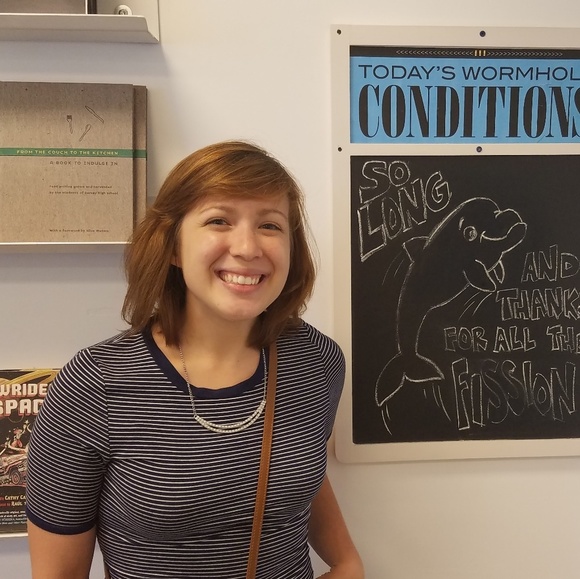 FROM THE COUCH TO THE KITCHEN
A BOOK TO INDULGE IN
TODAY'S WORMHOL
CONDITIONS
SO
LONG
AND
THANKS
FOR ALL THE
FISSION
WRIDE
SPAC
CATHY CA
RAÚL